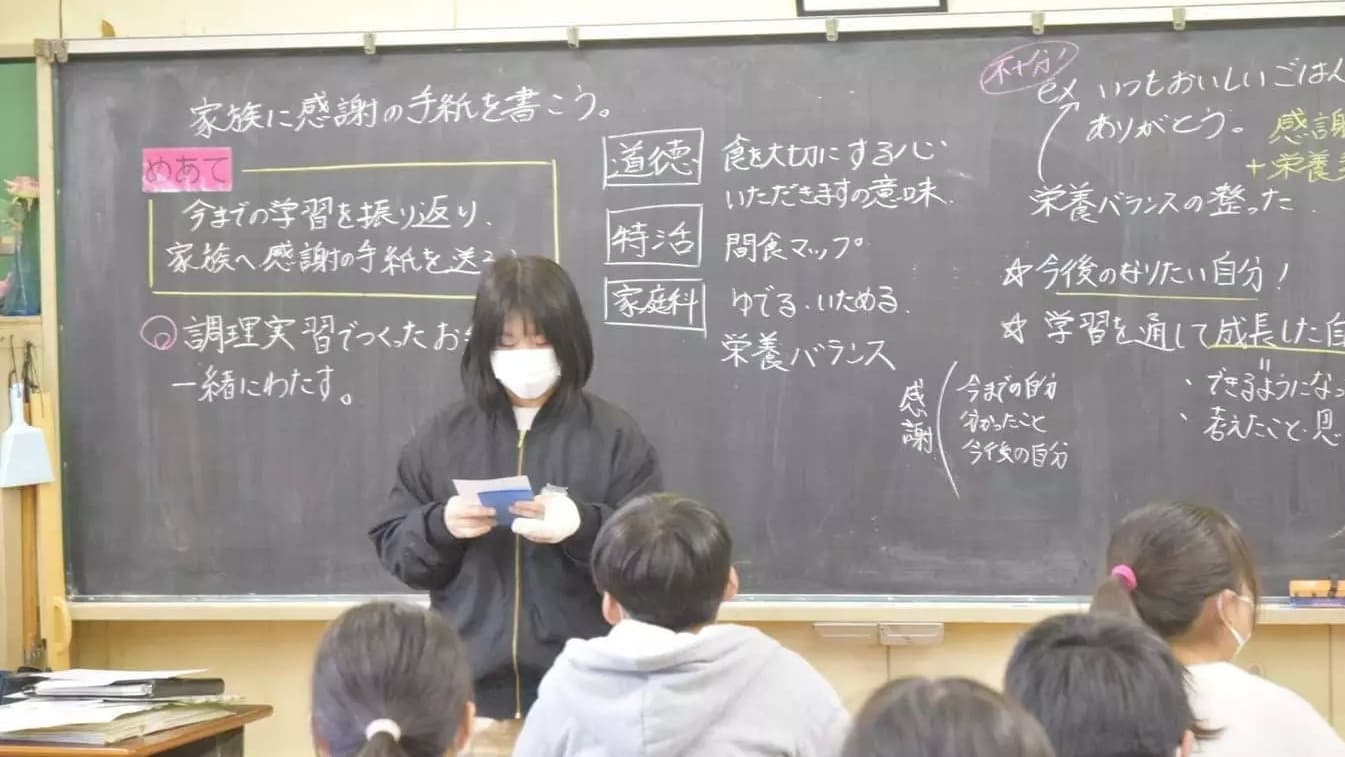 家族に感謝の手紙を書こう。
めあて
今までの学習を振り返り、
家族へ感謝の手紙を送
調理実習でつくったお
一緒にわたす。
道徳 食を大切にする心
いただきますの意味
特活 間食マップ
家庭科 ゆでる、いためる
栄養バランス
感謝
今までの自分
分かったこと
今後の自分
不十分!
ex いつもおいしいごはん
ありがとう。
感謝
+栄養
栄養バランスの整った
☆今後のなりたい自分!
☆学習を通して成長した自
・できるようになっ
・考えたこと・思